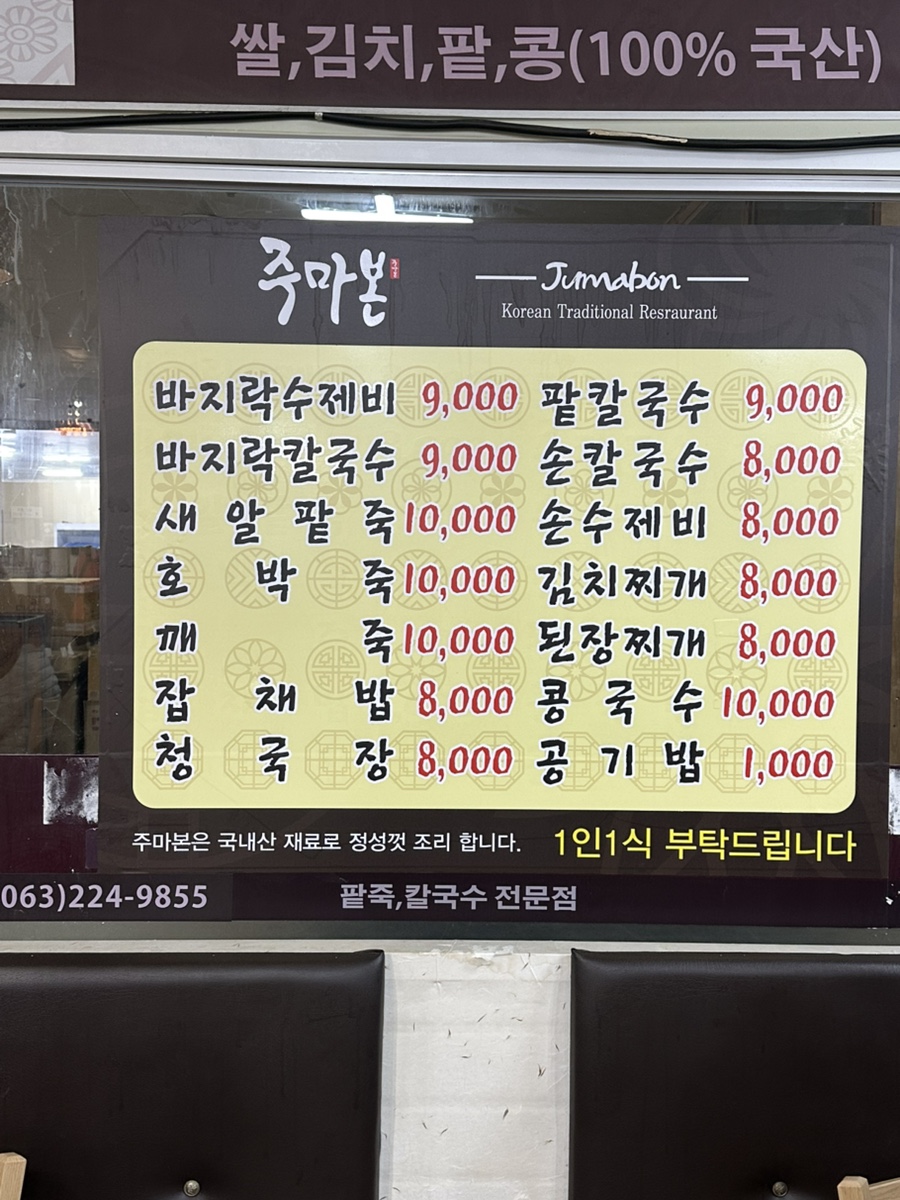 쌀,김치,팥,콩(100% 국산)
주마본
Jumabon
Korean Traditional Resraurant
바지락수제비 9,000 팥칼국수 9,000
바지락칼국수 9,000 손칼국수 8,000
새알팥죽 10,000 손수제비 8,000
호박죽 10,000 김치찌개 8,000
깨죽 10,000 된장찌개 8,000
잡채밥 8,000 콩국수 10,000
청국장 8,000 공기밥 1,000
주마본은 국내산 재료로 정성껏 조리 합니다. 1인1식 부탁드립니다
063)224-9855 팥죽,칼국수 전문점